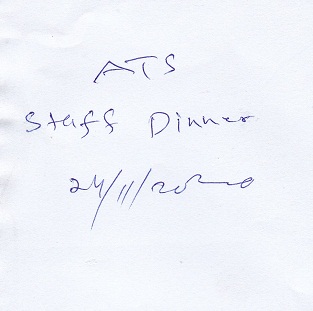 ATS
Staff Dinner
24/11/2020